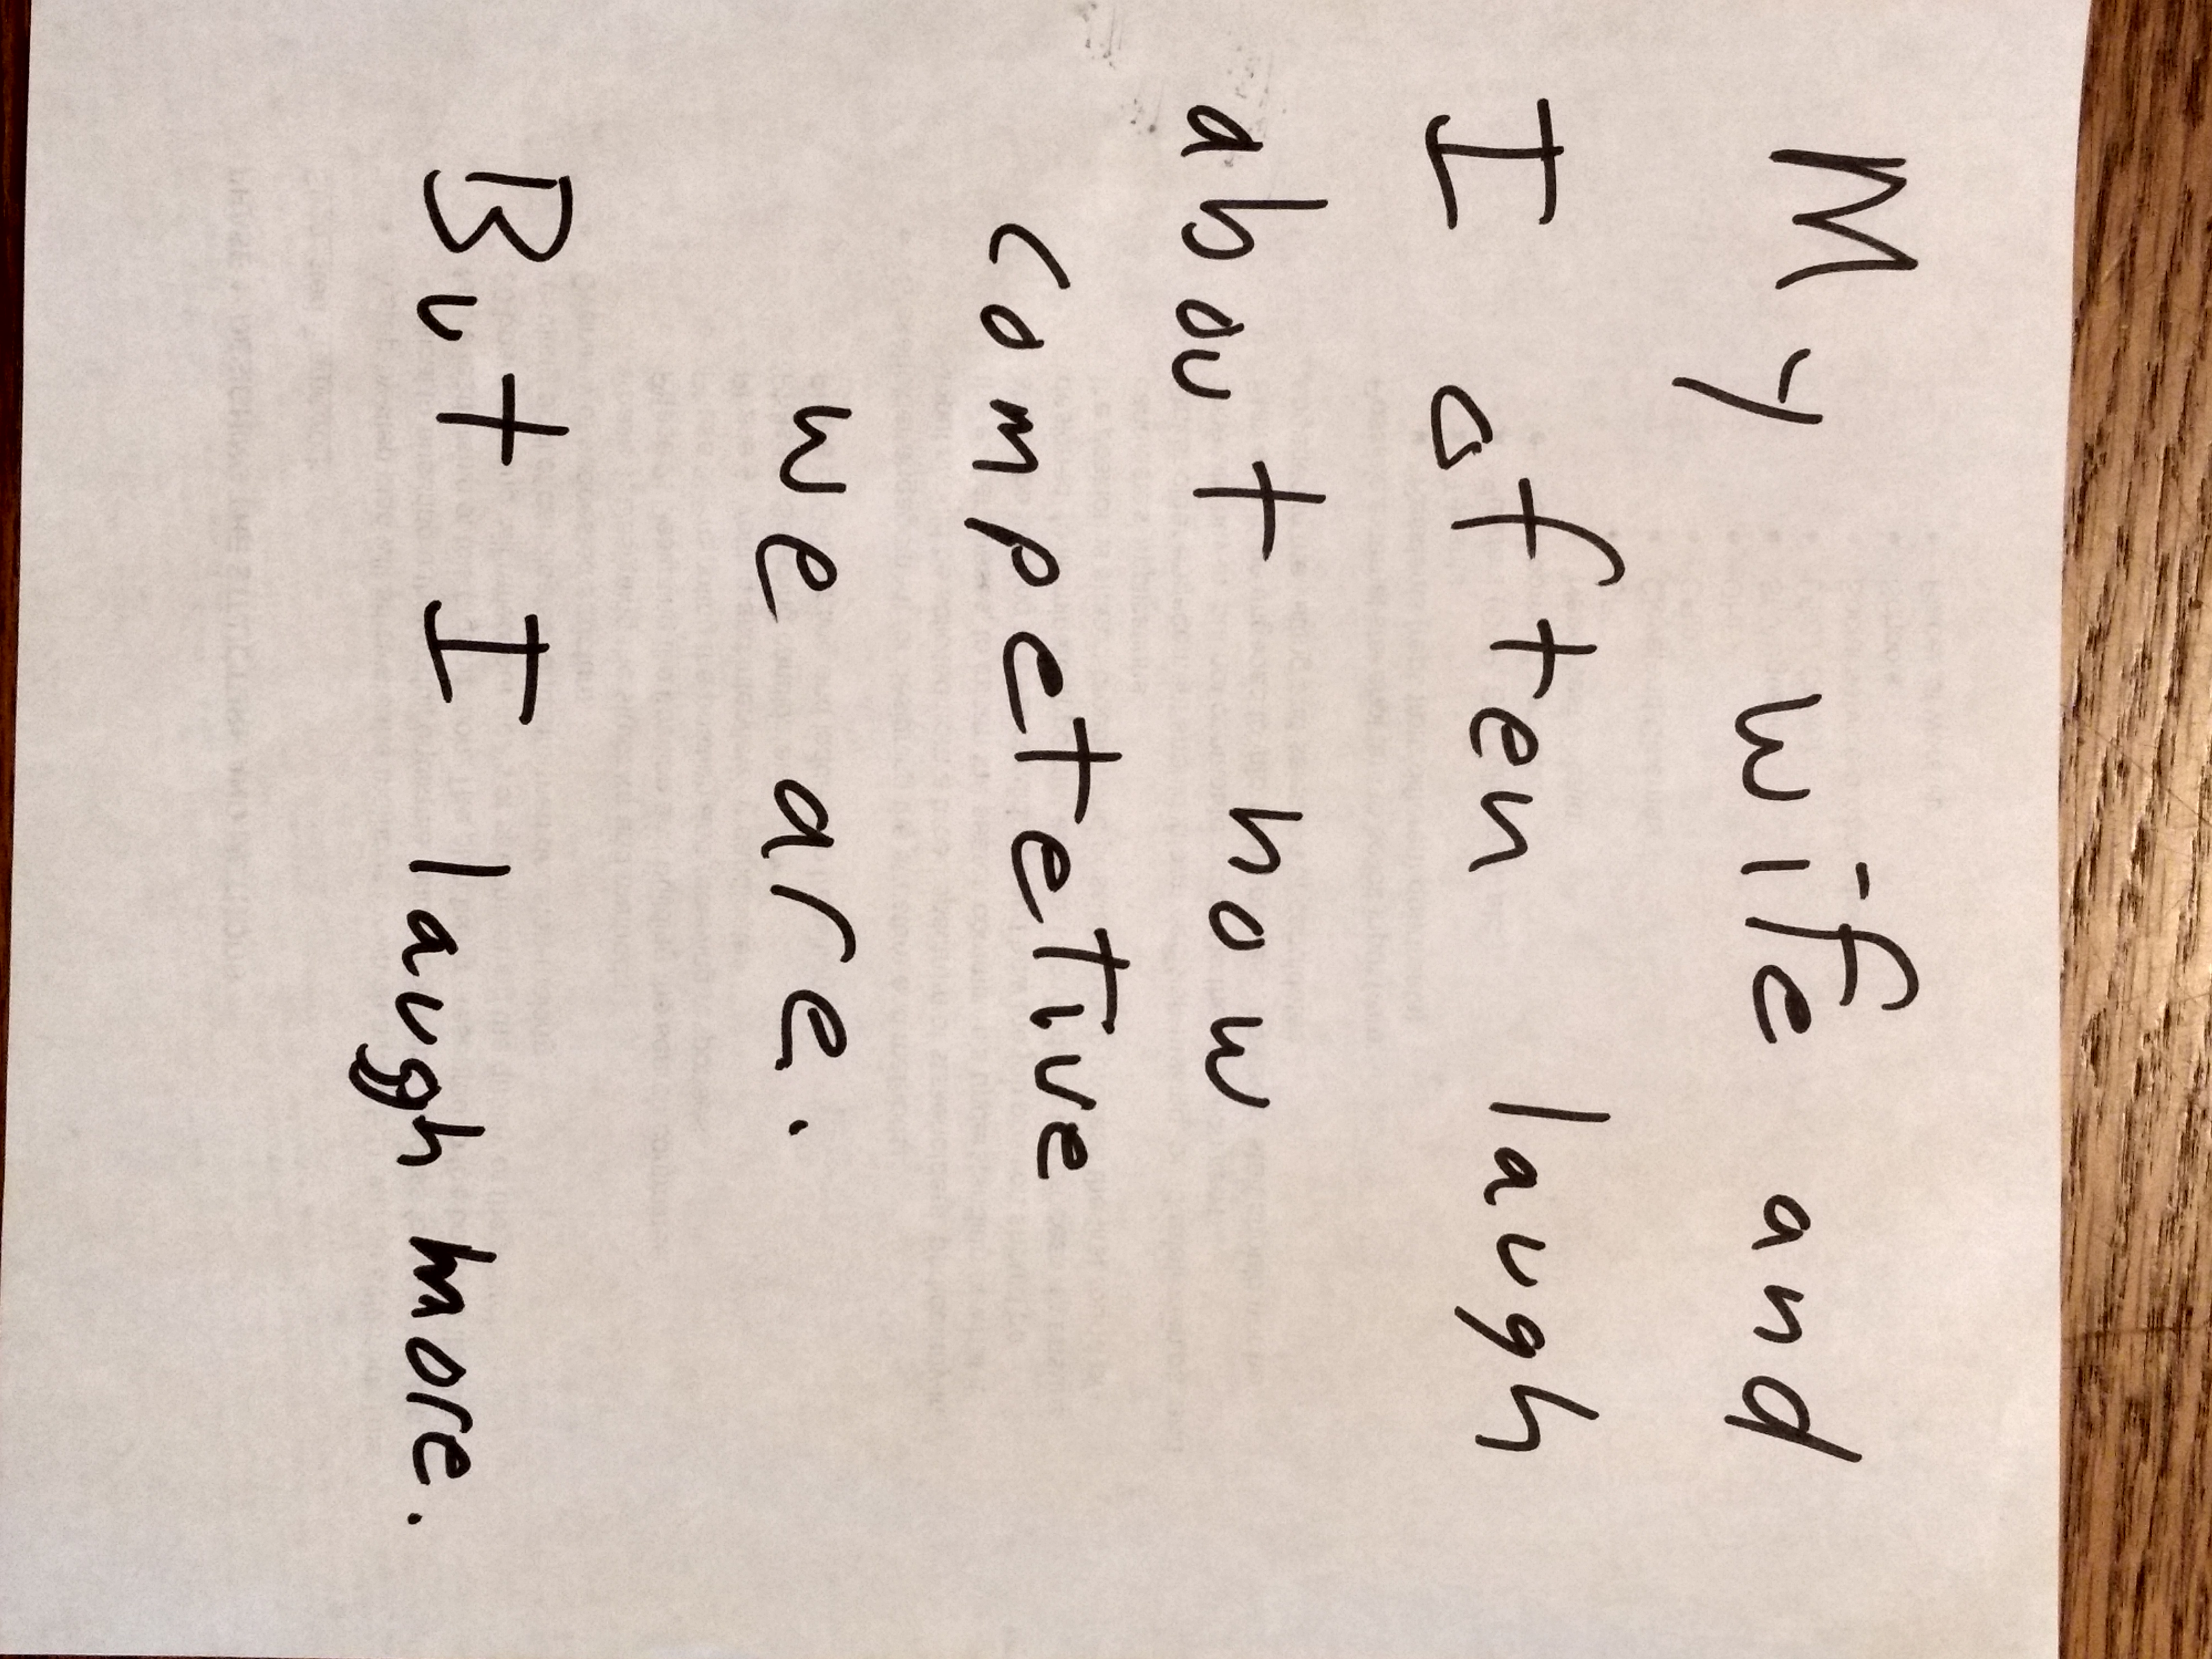 My wife and
I often laugh
about how
competetive
we are.
But I laugh more.